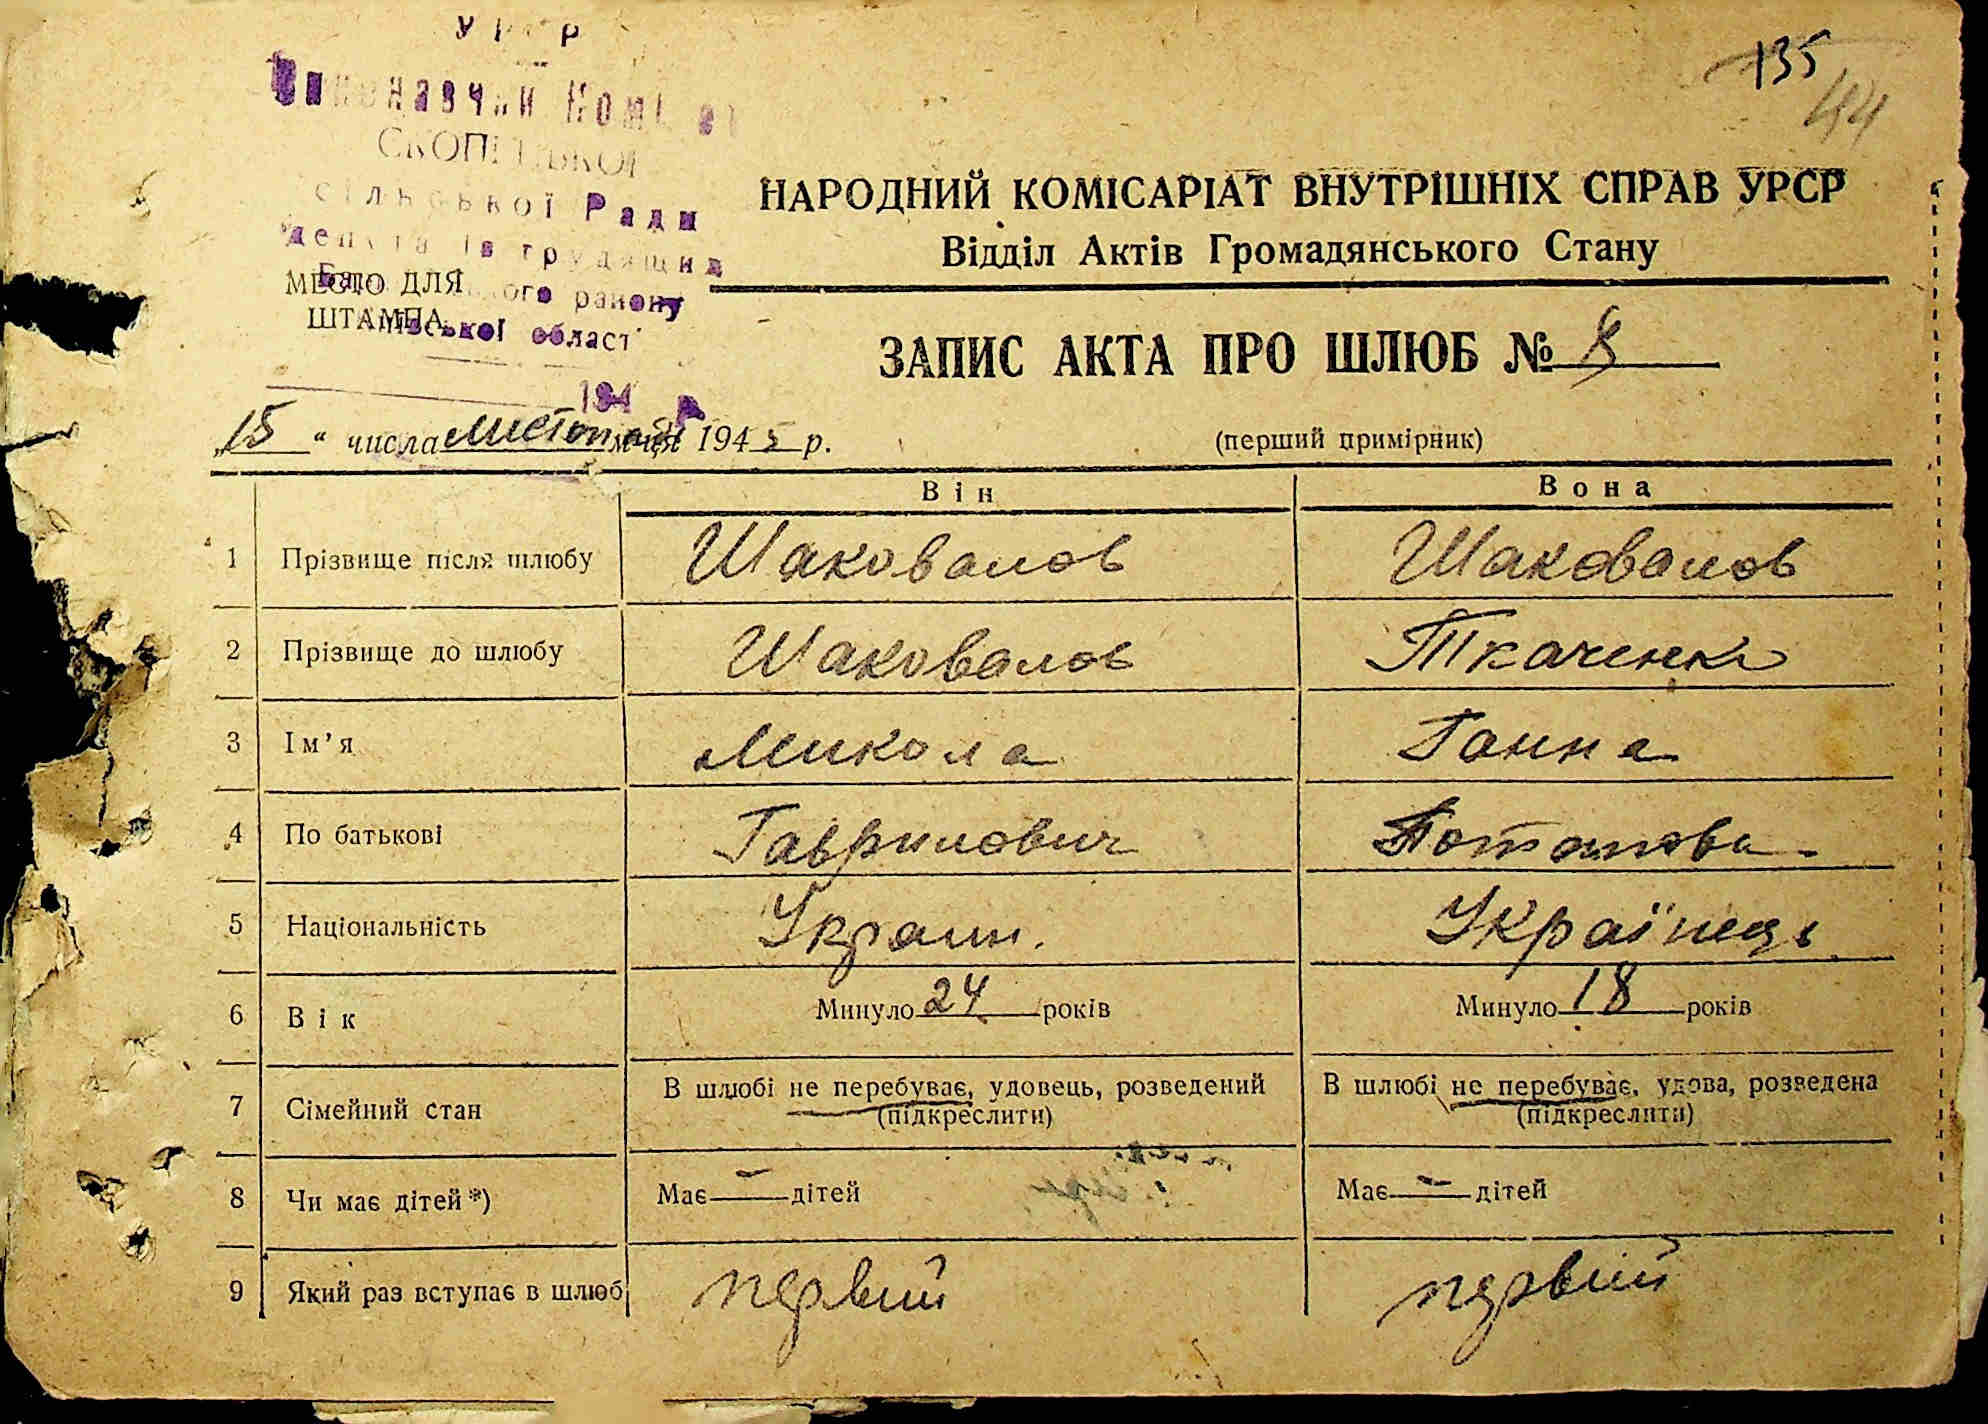 УРСР
Виконавчий Комітет
сільської Ради
депутатів трудящих
району
області
194 р
МЕСТО ДЛЯ
ШТАМПА
135
44
НАРОДНИЙ КОМІСАРІАТ ВНУТРІШНІХ СПРАВ УРСР
Відділ Актів Громадянського Стану
ЗАПИС АКТА ПРО ШЛЮБ № 8
„15“ числа листопада м-ця 1945 р. (перший примірник)
Він Вона
1 Прізвище після шлюбу Шаковалов Шаковалов
2 Прізвище до шлюбу Шаковалов Ткаченко
3 Ім’я Микола Ганна
4 По батькові Гаврилович Потапова
5 Національність Украин. Українець
6 Вік Минуло 24 років Минуло 18 років
7 Сімейний стан В шлюбі не перебуває, удовець, розведений В шлюбі не перебуває, удова, розведена
(підкреслити) (підкреслити)
8 Чи має дітей*) Має — дітей Має — дітей
9 Який раз вступає в шлюб первий первий